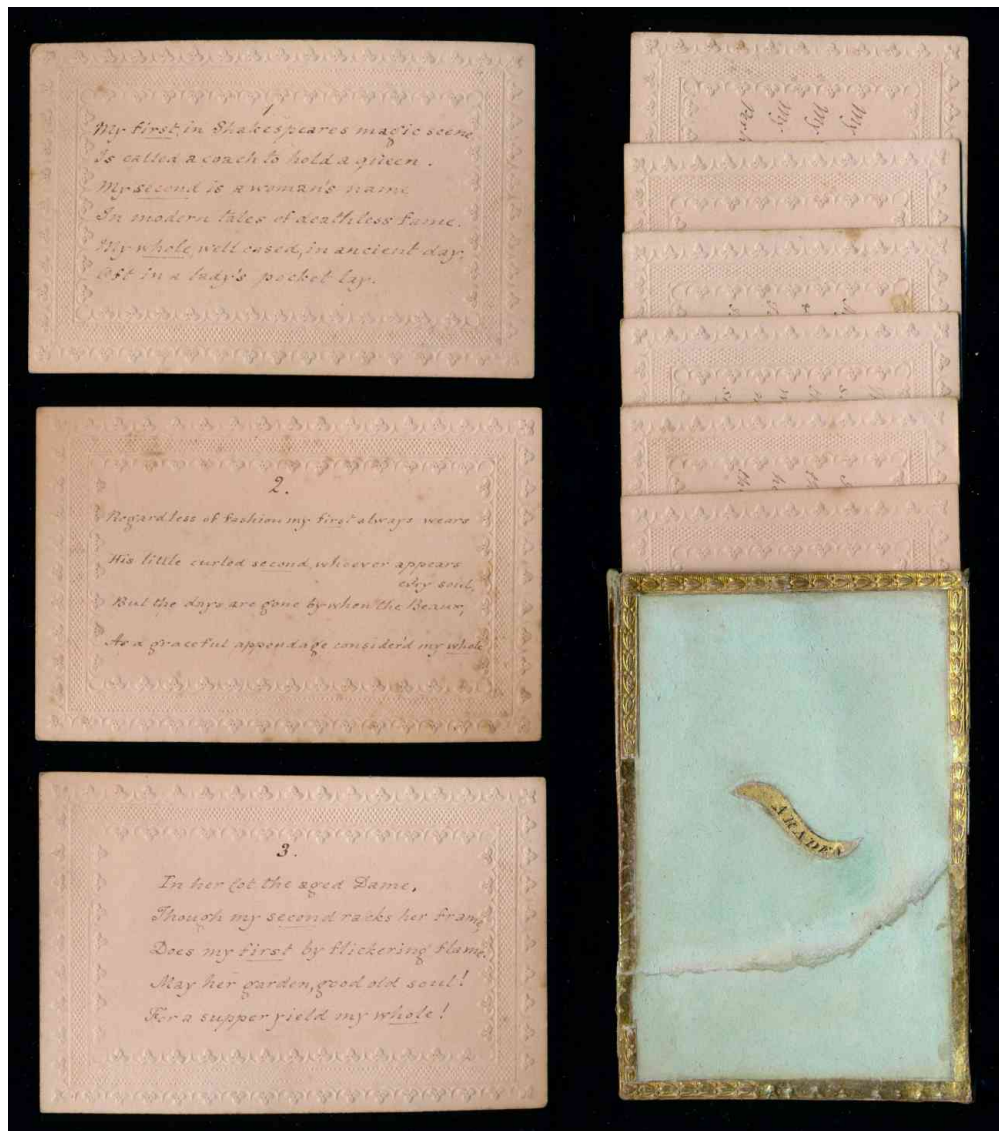 1
My first, in Shakespeares magic scene
Is called a coach to hold a queen.
My second is a woman's name
In modern tales of deathless fame.
My whole, well cased, in ancient day,
Oft in a lady's pocket lay.
2.
Regardless of fashion my first always wears
His little curled second, whoever appears
But the days are gone by when the Beaux, evry soul,
As a graceful appendage consider'd my whole
3.
In her Cot the aged Dame,
Though my second racks her frame,
Does my first by flickering flame.
May her garden, good old soul!
For a supper yield my whole!
My
My
My
ARADE